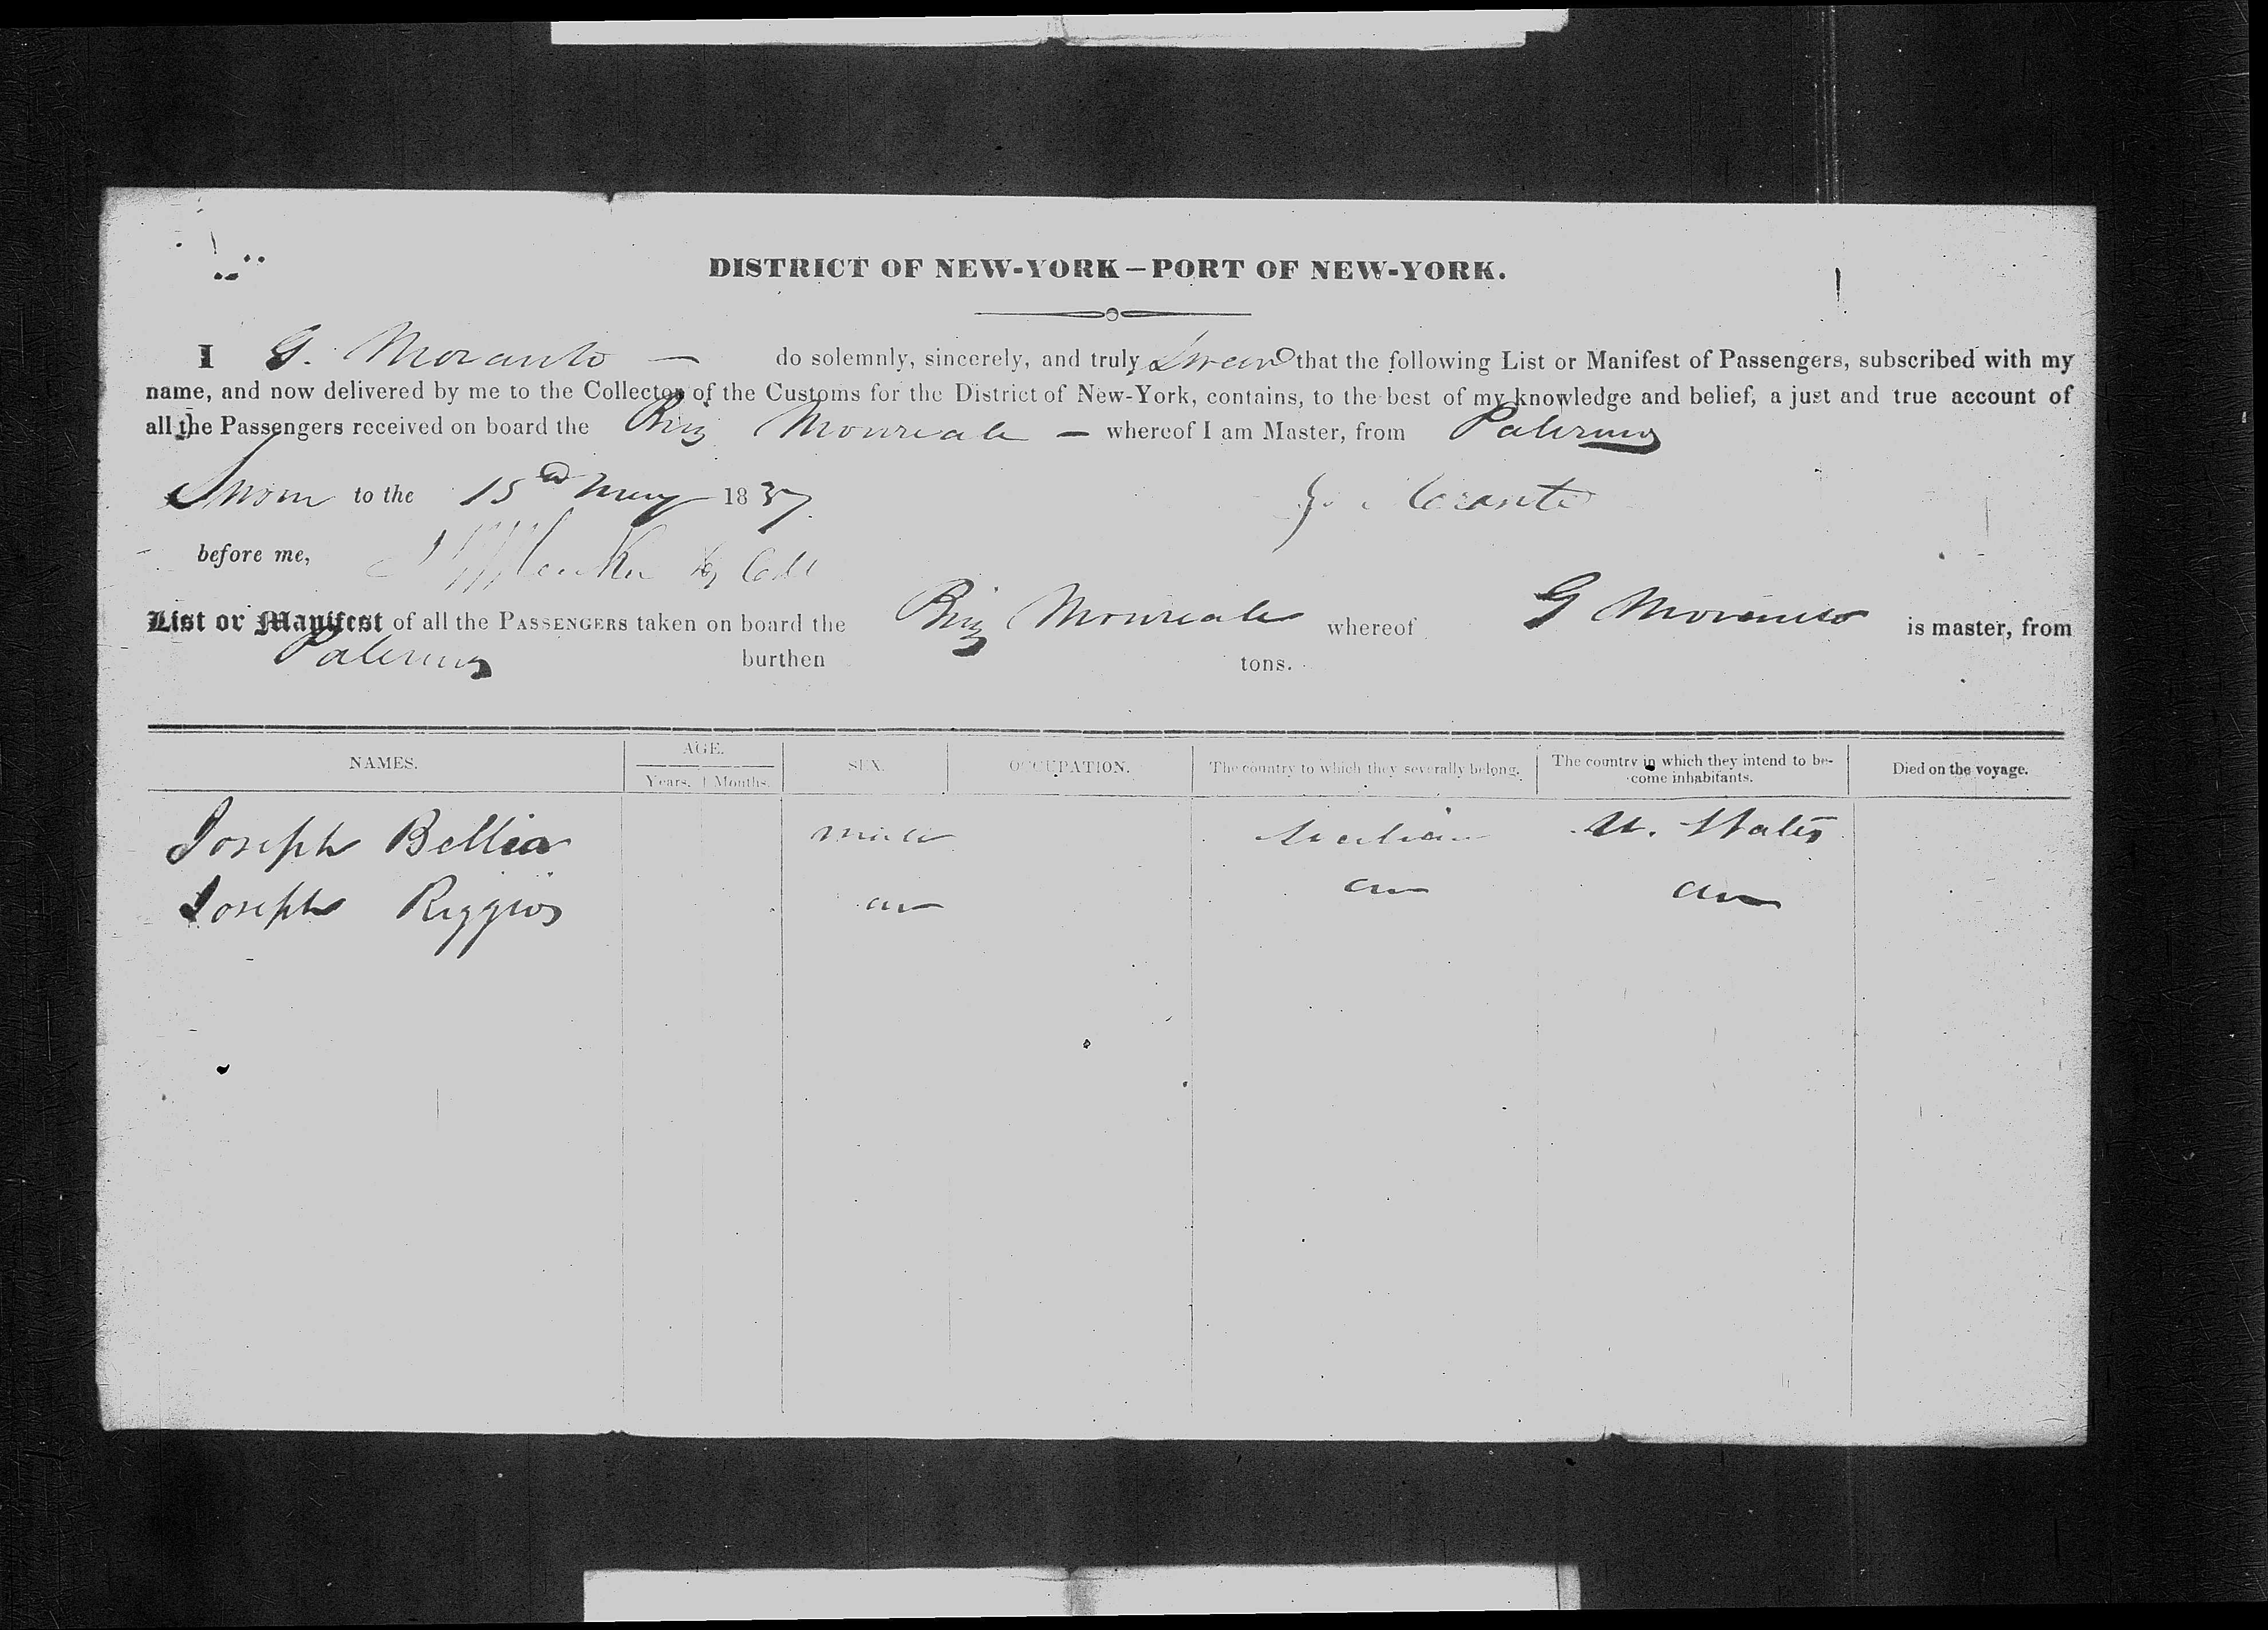 DISTRICT OF NEW-YORK—PORT OF NEW-YORK.
I G. Moranto — do solemnly, sincerely, and truly Swear that the following List or Manifest of Passengers, subscribed with my
name, and now delivered by me to the Collector of the Customs for the District of New-York, contains, to the best of my knowledge and belief, a just and true account of
all the Passengers received on board the Brig Monreale — whereof I am Master, from Palermo
Sworn to the 15 May 1837 
before me,
List or Manifest of all the PASSENGERS taken on board the Brig Monreale whereof G Moranto is master, from
Palermo burthen tons.
NAMES. AGE. SEX. OCCUPATION. The country to which they severally belong. The country in which they intend to be-
come inhabitants. Died on the voyage.
Years. Months.
Joseph Bellia male Sicilian U. States
Joseph Riggio do do do